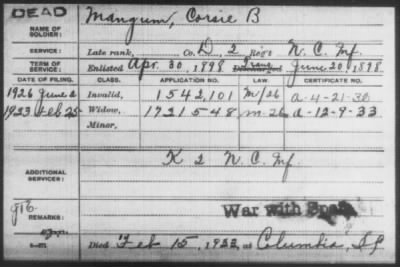 DEAD
NAME OF SOLDIER: Mangum, Corsie B
SERVICE: Late rank, Co. D, 2 Reg't N. C. Inf.
TERM OF SERVICE: Enlisted Apr. 30, 1898 Trans June 20, 1898
DATE OF FILING. CLASS. APPLICATION NO. LAW. CERTIFICATE NO.
1926 June 2 Invalid, 1542,101 m/26 a-4-21-30
1933 Feb 25 Widow, 1721548 m-26 d-12-9-33
Minor,
ADDITIONAL SERVICES: K 2 N. C. Inf.
REMARKS: War with Spain
Died Feb 15, 1933, at Columbia, S.C.